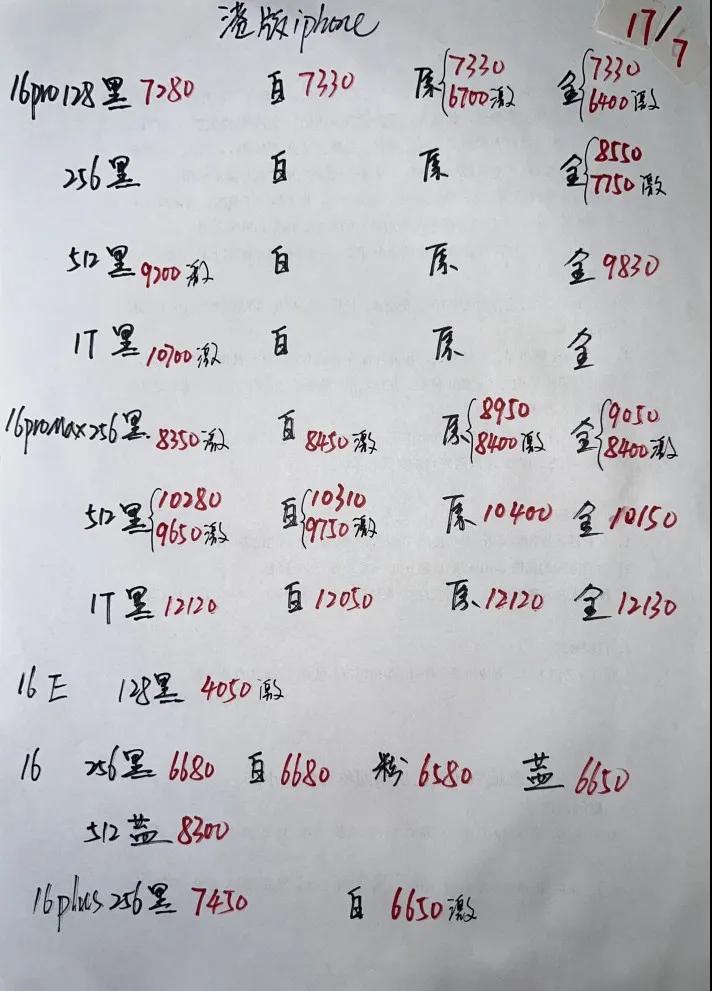 港版iphone 17/7
16pro128黑 7280 白 7330 原{7330 6700激 金{7330 6400激
256黑 白 原 金{8550 7750激
512黑 9200激 白 原 金 9830
1T 黑 10700激 白 原 金
16promax256黑 8350激 白 8450激 原{8950 8400激 金{9050 8400激
512黑{10280 9650激 白{10310 9750激 原 10400 金 10150
1T 黑 12120 白 12050 原 12120 金 12130
16 E 128黑 4050激
16 256黑 6680 白 6680 粉 6580 蓝 6650
512 蓝 8300
16plus 256黑 7450 白 6650激